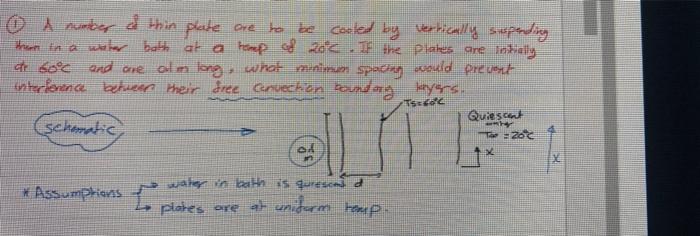 ① A number of thin plate are to be cooled by vertically suspending
them in a water bath at a temp of 20°C. If the plates are initially
at 60°C and are 0.1m long, what minimum spacing would prevent
interference between their free convection boundary layers.
Ts=60°C
Quiescent
water
T∞ = 20°C
schematic
0.1
m
d
x
x
* Assumptions
→ water in bath is quiescent
→ plates are at uniform temp.